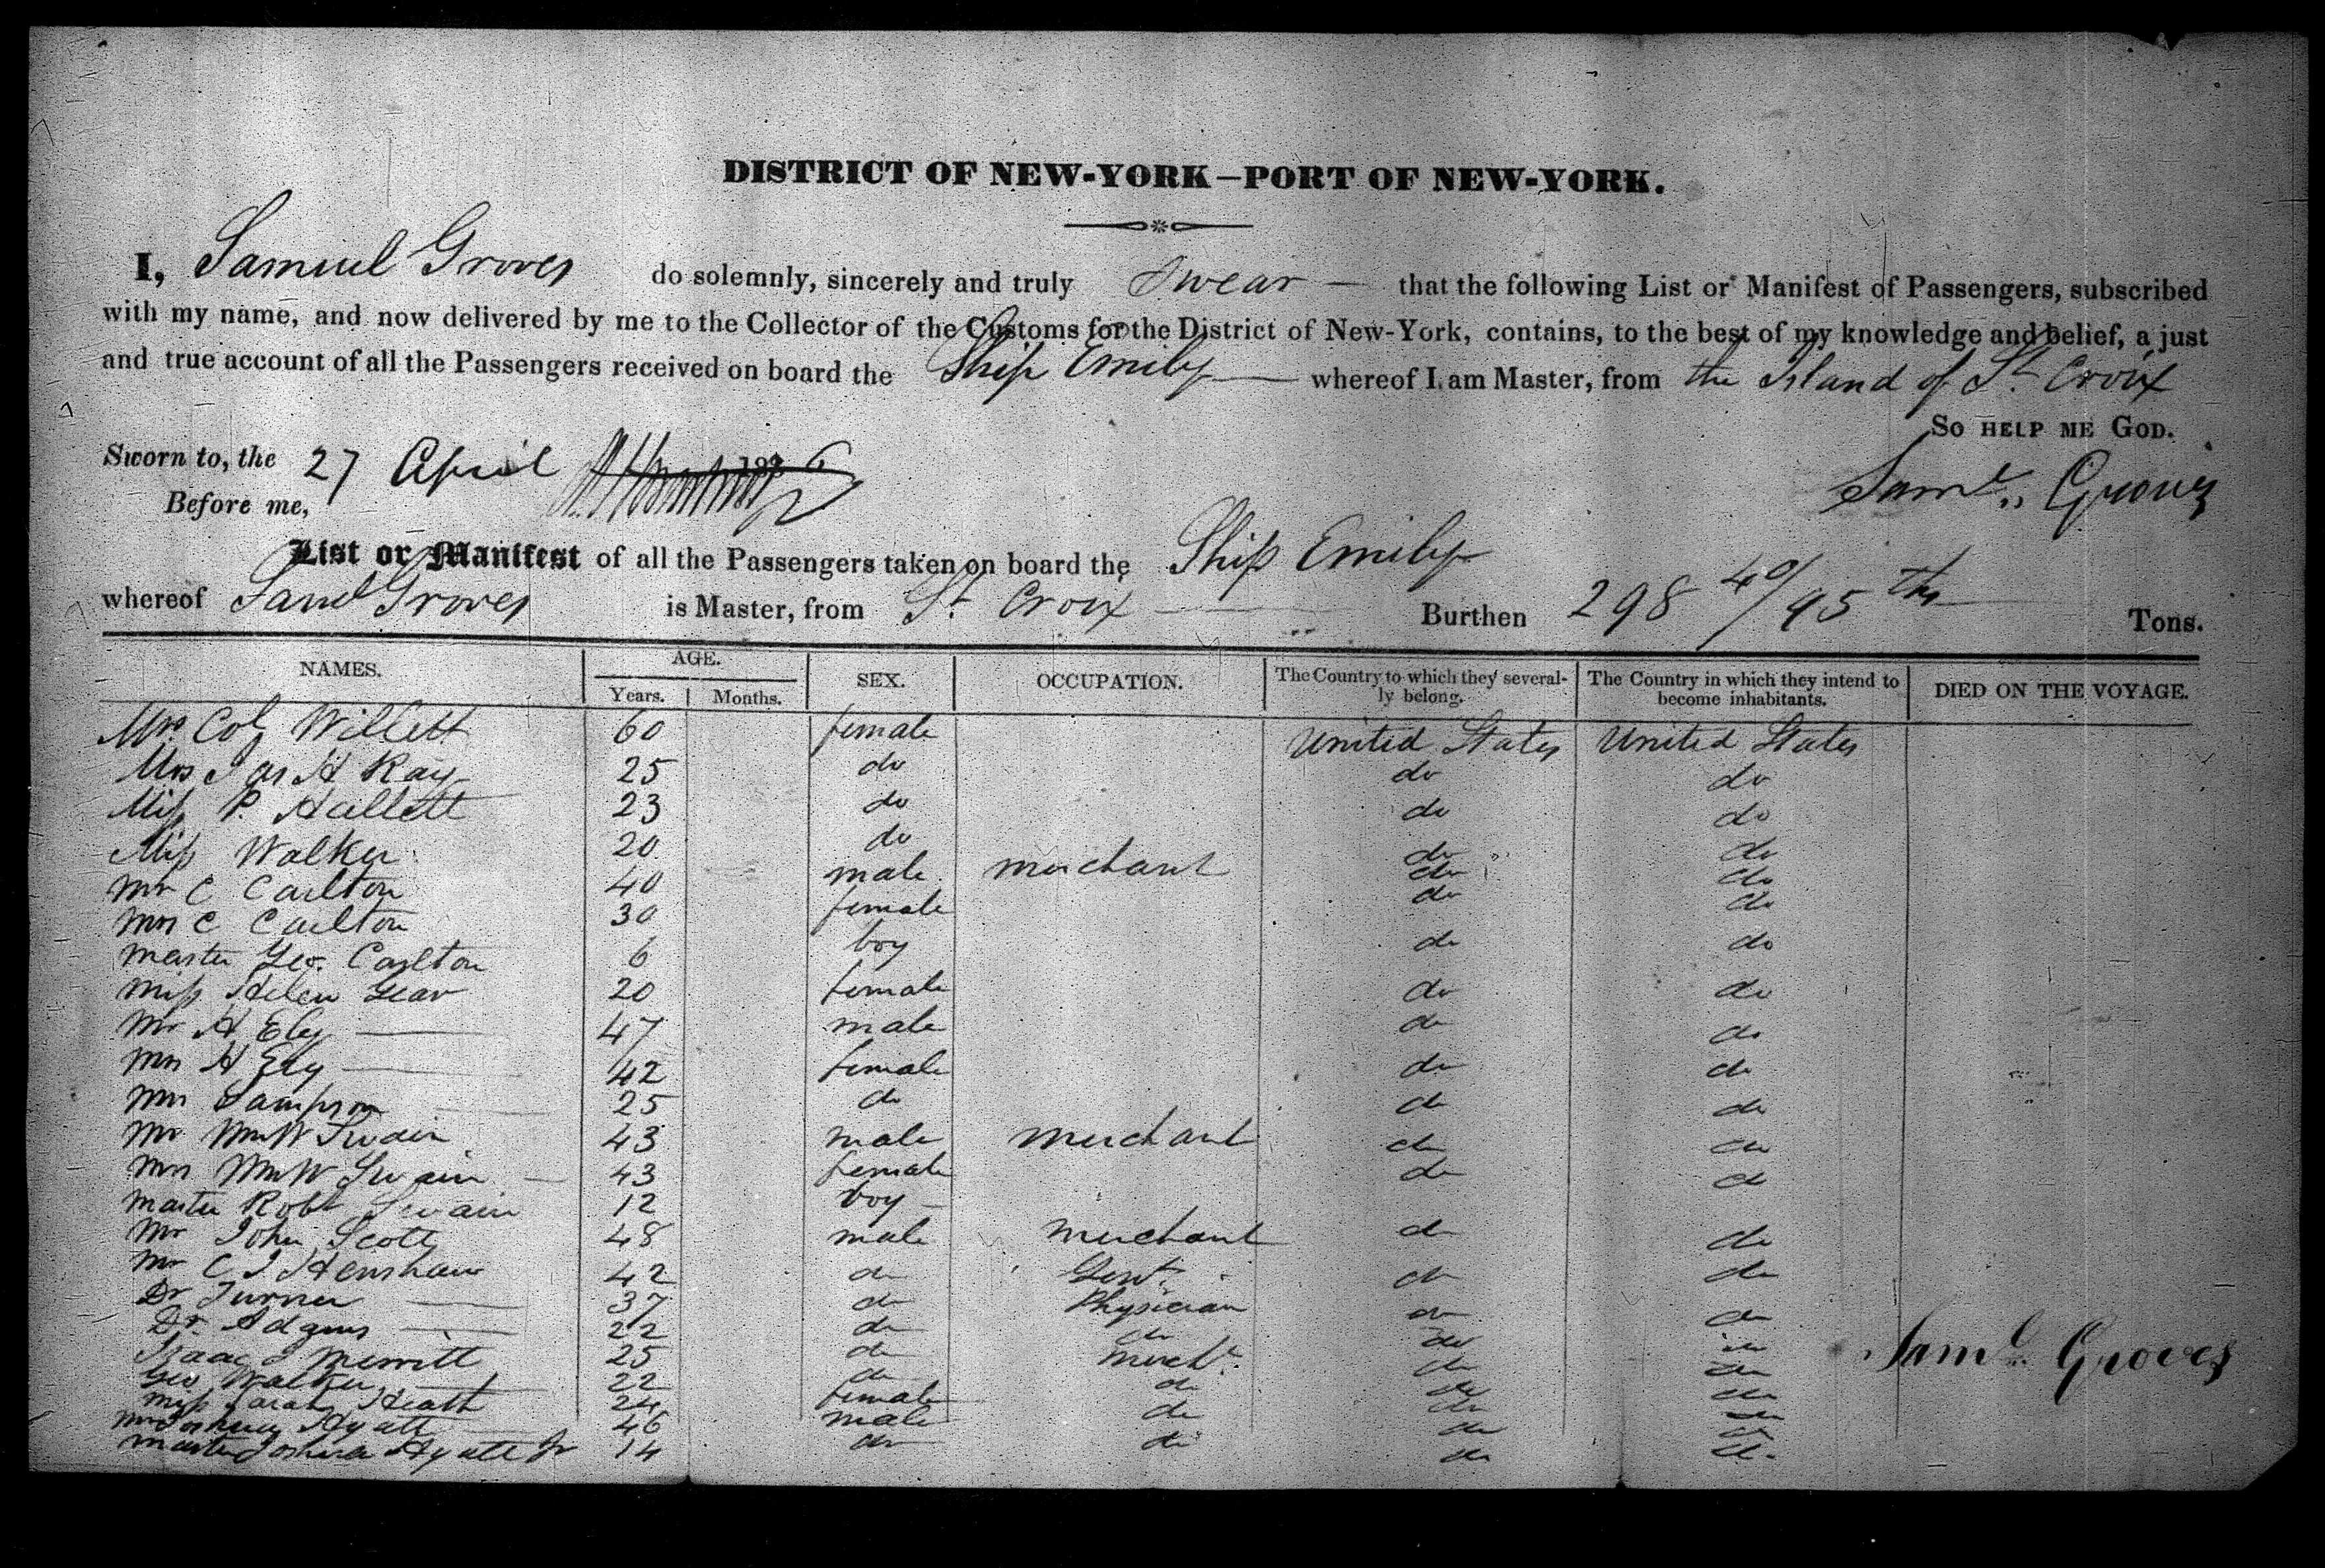 DISTRICT OF NEW-YORK—PORT OF NEW-YORK.
I, Samuel Groves do solemnly, sincerely and truly Swear — that the following List or Manifest of Passengers, subscribed
with my name, and now delivered by me to the Collector of the Customs for the District of New-York, contains, to the best of my knowledge and belief, a just
and true account of all the Passengers received on board the Ship Emily whereof I am Master, from the Island of St Croix
SO HELP ME GOD.
Sworn to, the 27 April 1836
Saml. Groves
Before me,
List or Manifest of all the Passengers taken on board the Ship Emily
whereof Saml Groves is Master, from St Croix Burthen 298 40/95 ths Tons.
NAMES. AGE. Years. Months. SEX. OCCUPATION. The Country to which they severally belong. The Country in which they intend to become inhabitants. DIED ON THE VOYAGE.
Mrs Col Willett 60 female United States United States
Mrs Jas H Ray 25 do do do
Miss P. Hallett 23 do do do
Miss Walker 20 do do do
Mr C Carlton 40 male merchant do do
Mrs C Carlton 30 female do do
Master Geo. Carlton 6 boy do do
Miss Helen Gear 20 female do do
Mr H Ely 47 male do do
Mrs H Ely 42 female do do
Mrs Sampson 25 do do do
Mr Wm W Swain 43 male merchant do do
Mrs Wm W Swain 43 female do do
Master Robt Swain 12 boy
Mr John Scott 48 male merchant do do
Mr C J Henshaw 42 do Gent. do do
Dr Turner 37 do Physician do do
Dr. Adams 22 do do do do
Isaac J Merritt 25 do Mercht. do do
Geo Walker 22 do do do do
Miss Sarah Heath 24 female do do
Mr Joshua Hyatt 46 male do do do
Master Joshua Hyatt Jr 14 do do do do
Saml. Groves